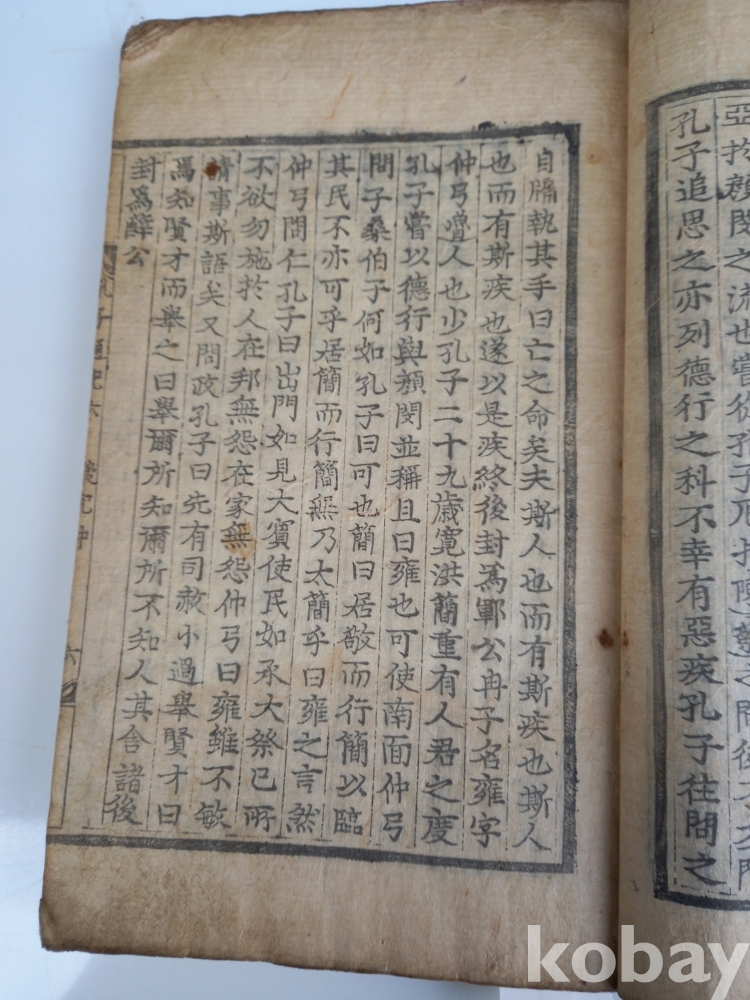 亞
孔子追思之亦列德行之科不幸有惡疾孔子往問之
自牖執其手曰亡之命矣夫斯人也而有斯疾也斯人
也而有斯疾也遂以是疾終後封爲鄆公冉子名雍字
仲弓魯人也少孔子二十九歲寬洪簡重有人君之度
孔子嘗以德行與顏閔並稱且曰雍也可使南面仲弓
問子桑伯子何如孔子曰可也簡曰居敬而行簡以臨
其民不亦可乎居簡而行簡無乃太簡乎曰雍之言然
仲弓問仁孔子曰出門如見大賓使民如承大祭己所
不欲勿施於人在邦無怨在家無怨仲弓曰雍雖不敏
請事斯語矣又問政孔子曰先有司赦小過舉賢才曰
焉知賢才而舉之曰舉爾所知爾所不知人其舍諸後
封爲薛公
孔子通紀六
六
kobay